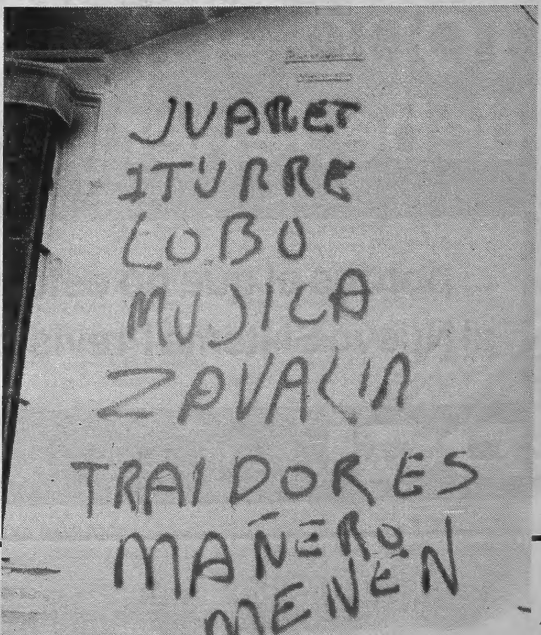 JUARET
ITURRE
LOBO
MUJICA
ZAVALIA
TRAIDORES
MAÑERO
MENEN